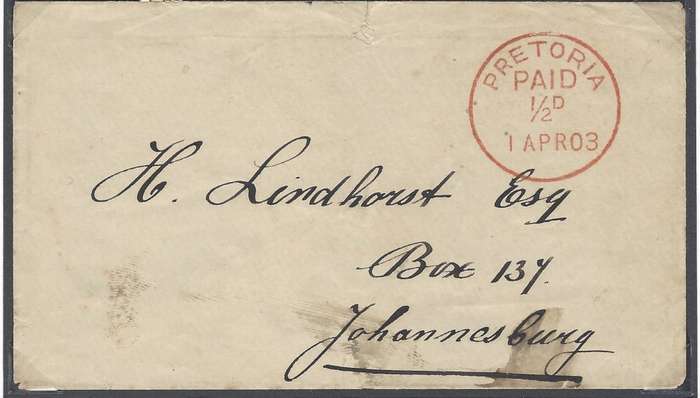 PRETORIA
PAID
½D
1 APR03
H. Lindhorst Esq
Box 137.
Johannesburg